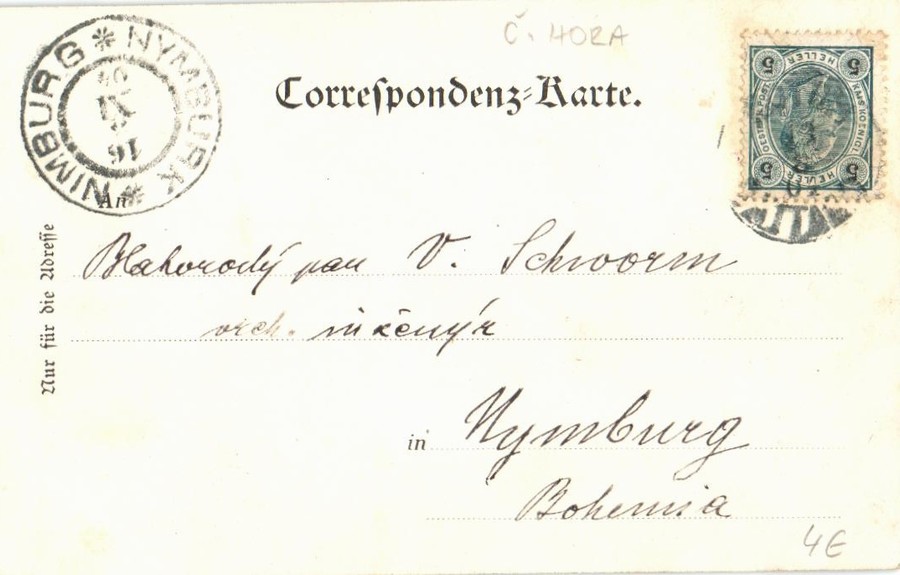 Č. HORA
NIMBURG * NYMBURK *
16
XI
04
Correspondenz-Karte.
5 HELLER 5
KAIS. KOENIGL.
OESTERR. POST
5 HELLER 5
An
Blahorodý pan V. Schwoorm
vrch. inženýr
in Nymburg
Bohemia
Nur für die Adresse
4E